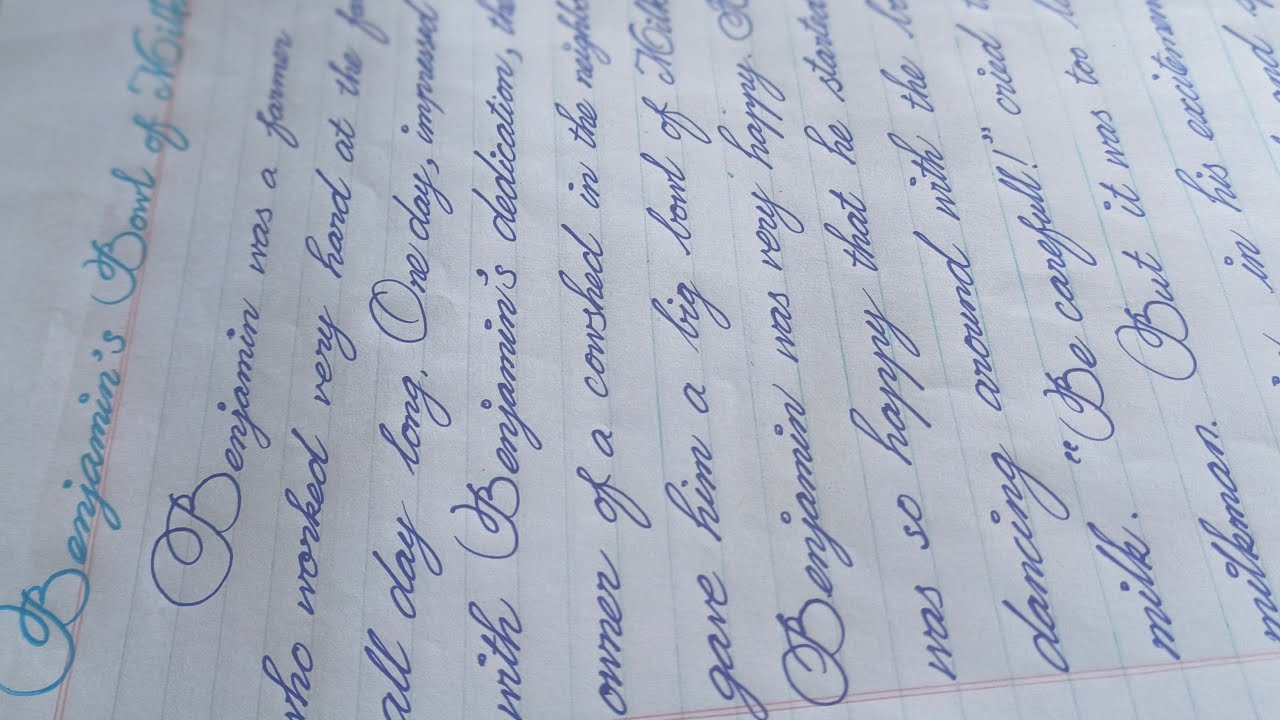 Benjamin's Bowl of Milk
Benjamin was a farmer
who worked very hard at the
all day long. One day, impressed
with Benjamin's dedication,
owner of a cowshed in the
gave him a big bowl of Milk
Benjamin was very happy.
was so happy that he started
dancing around with the
"Be carefull!" cried
milk. But it was too
milkman. in his